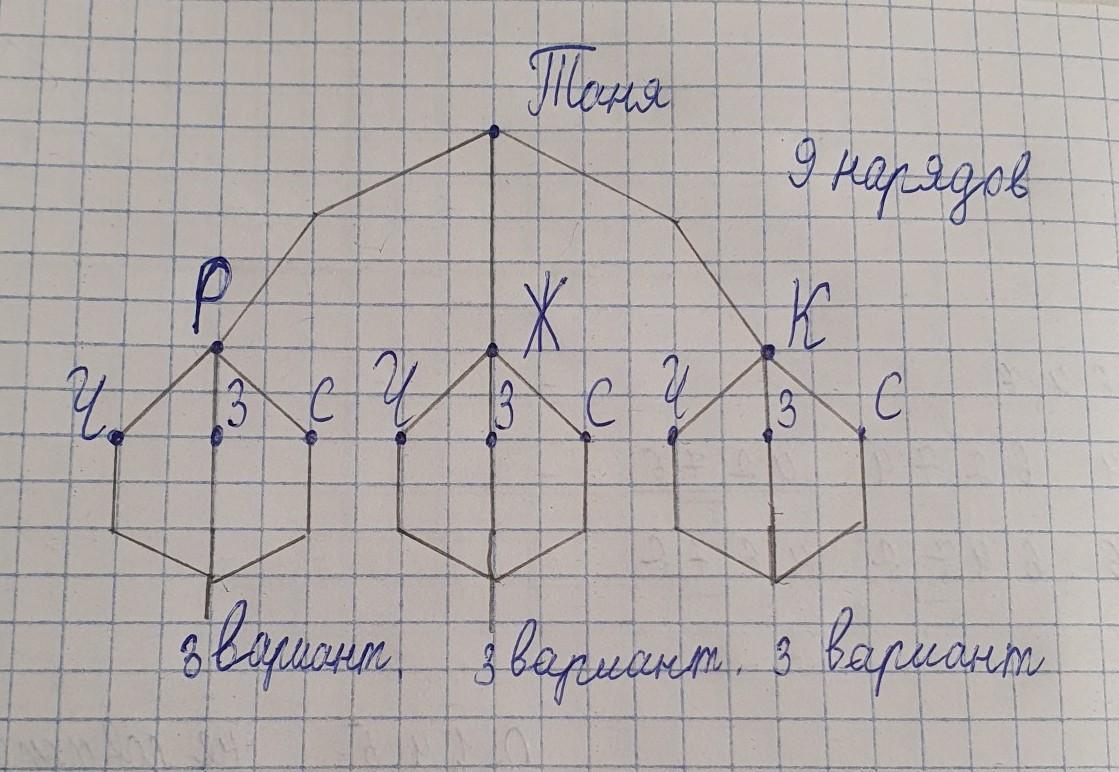 Таня
9 нарядов
Р Ж К
Ч З С Ч З С Ч З С
3 вариант. 3 вариант. 3 вариант